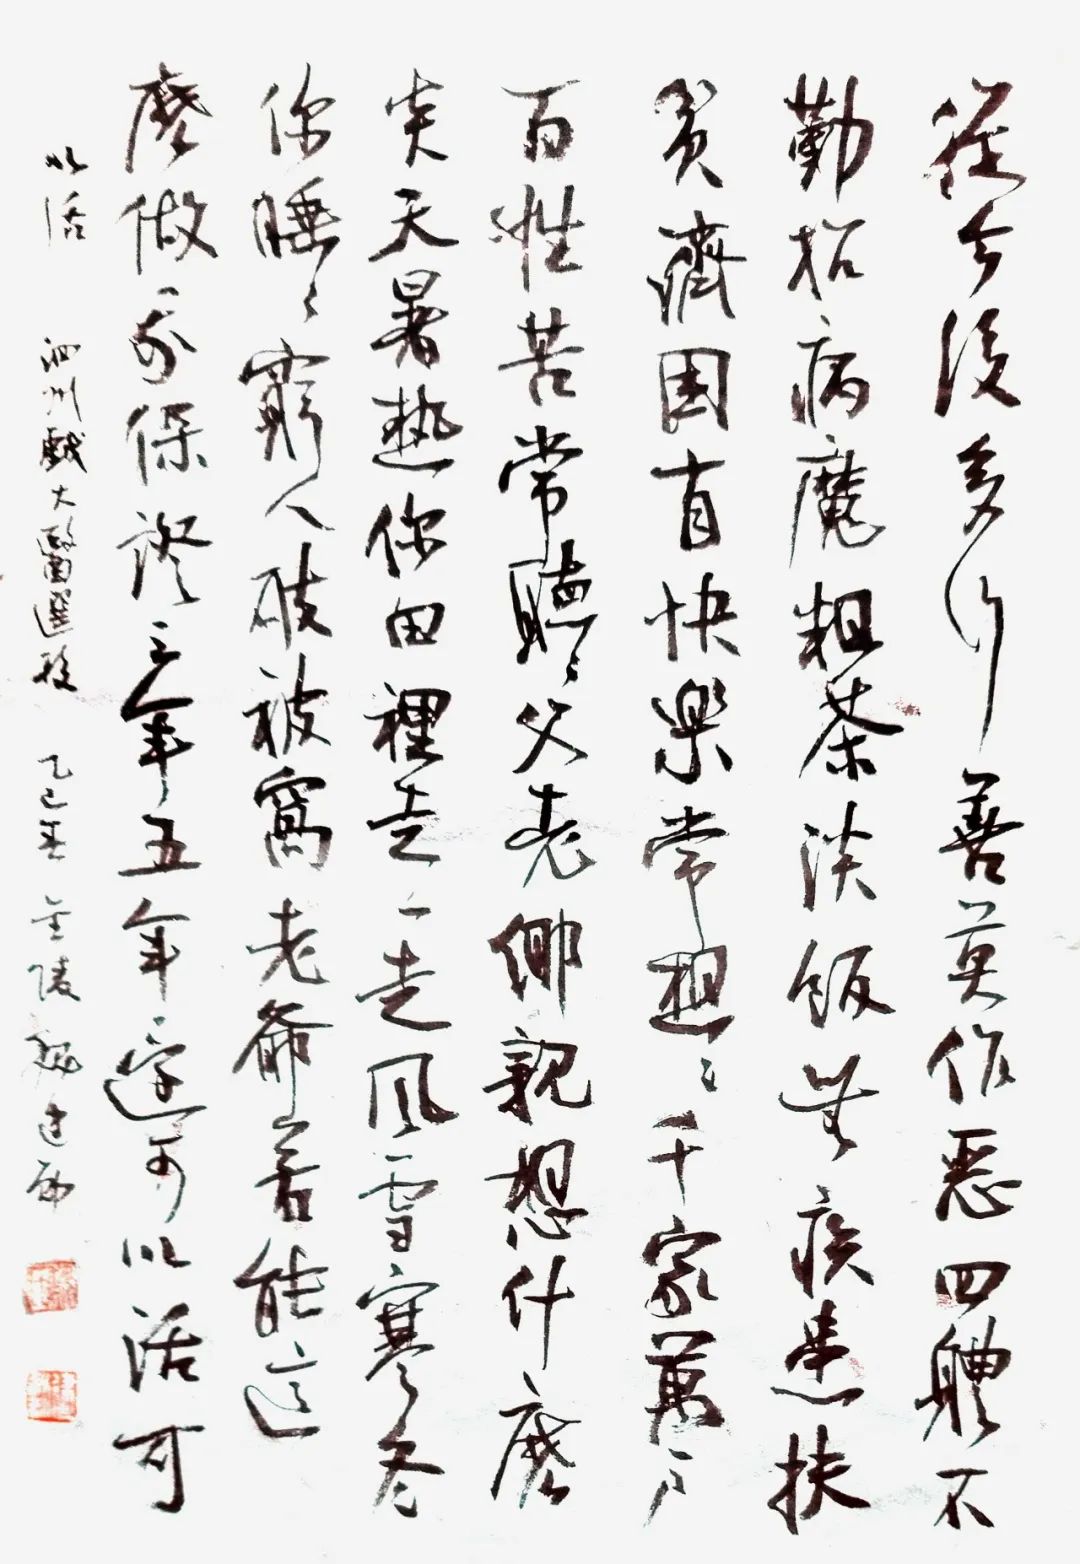 從今後多行善莫作惡四體不
勤招病魔粗茶淡飯無疾患扶
貧濟困自快樂常想想千家萬戶
百性苦常聽聽父老鄉親想什麼
炎天暑熱你田裡走一走風雪寒冬
你睡睡窮人破被窩老爺若能這
麼做我保證三年五年還可以活可
以活
泗州戲大醫選段 乙巳 金陵 建